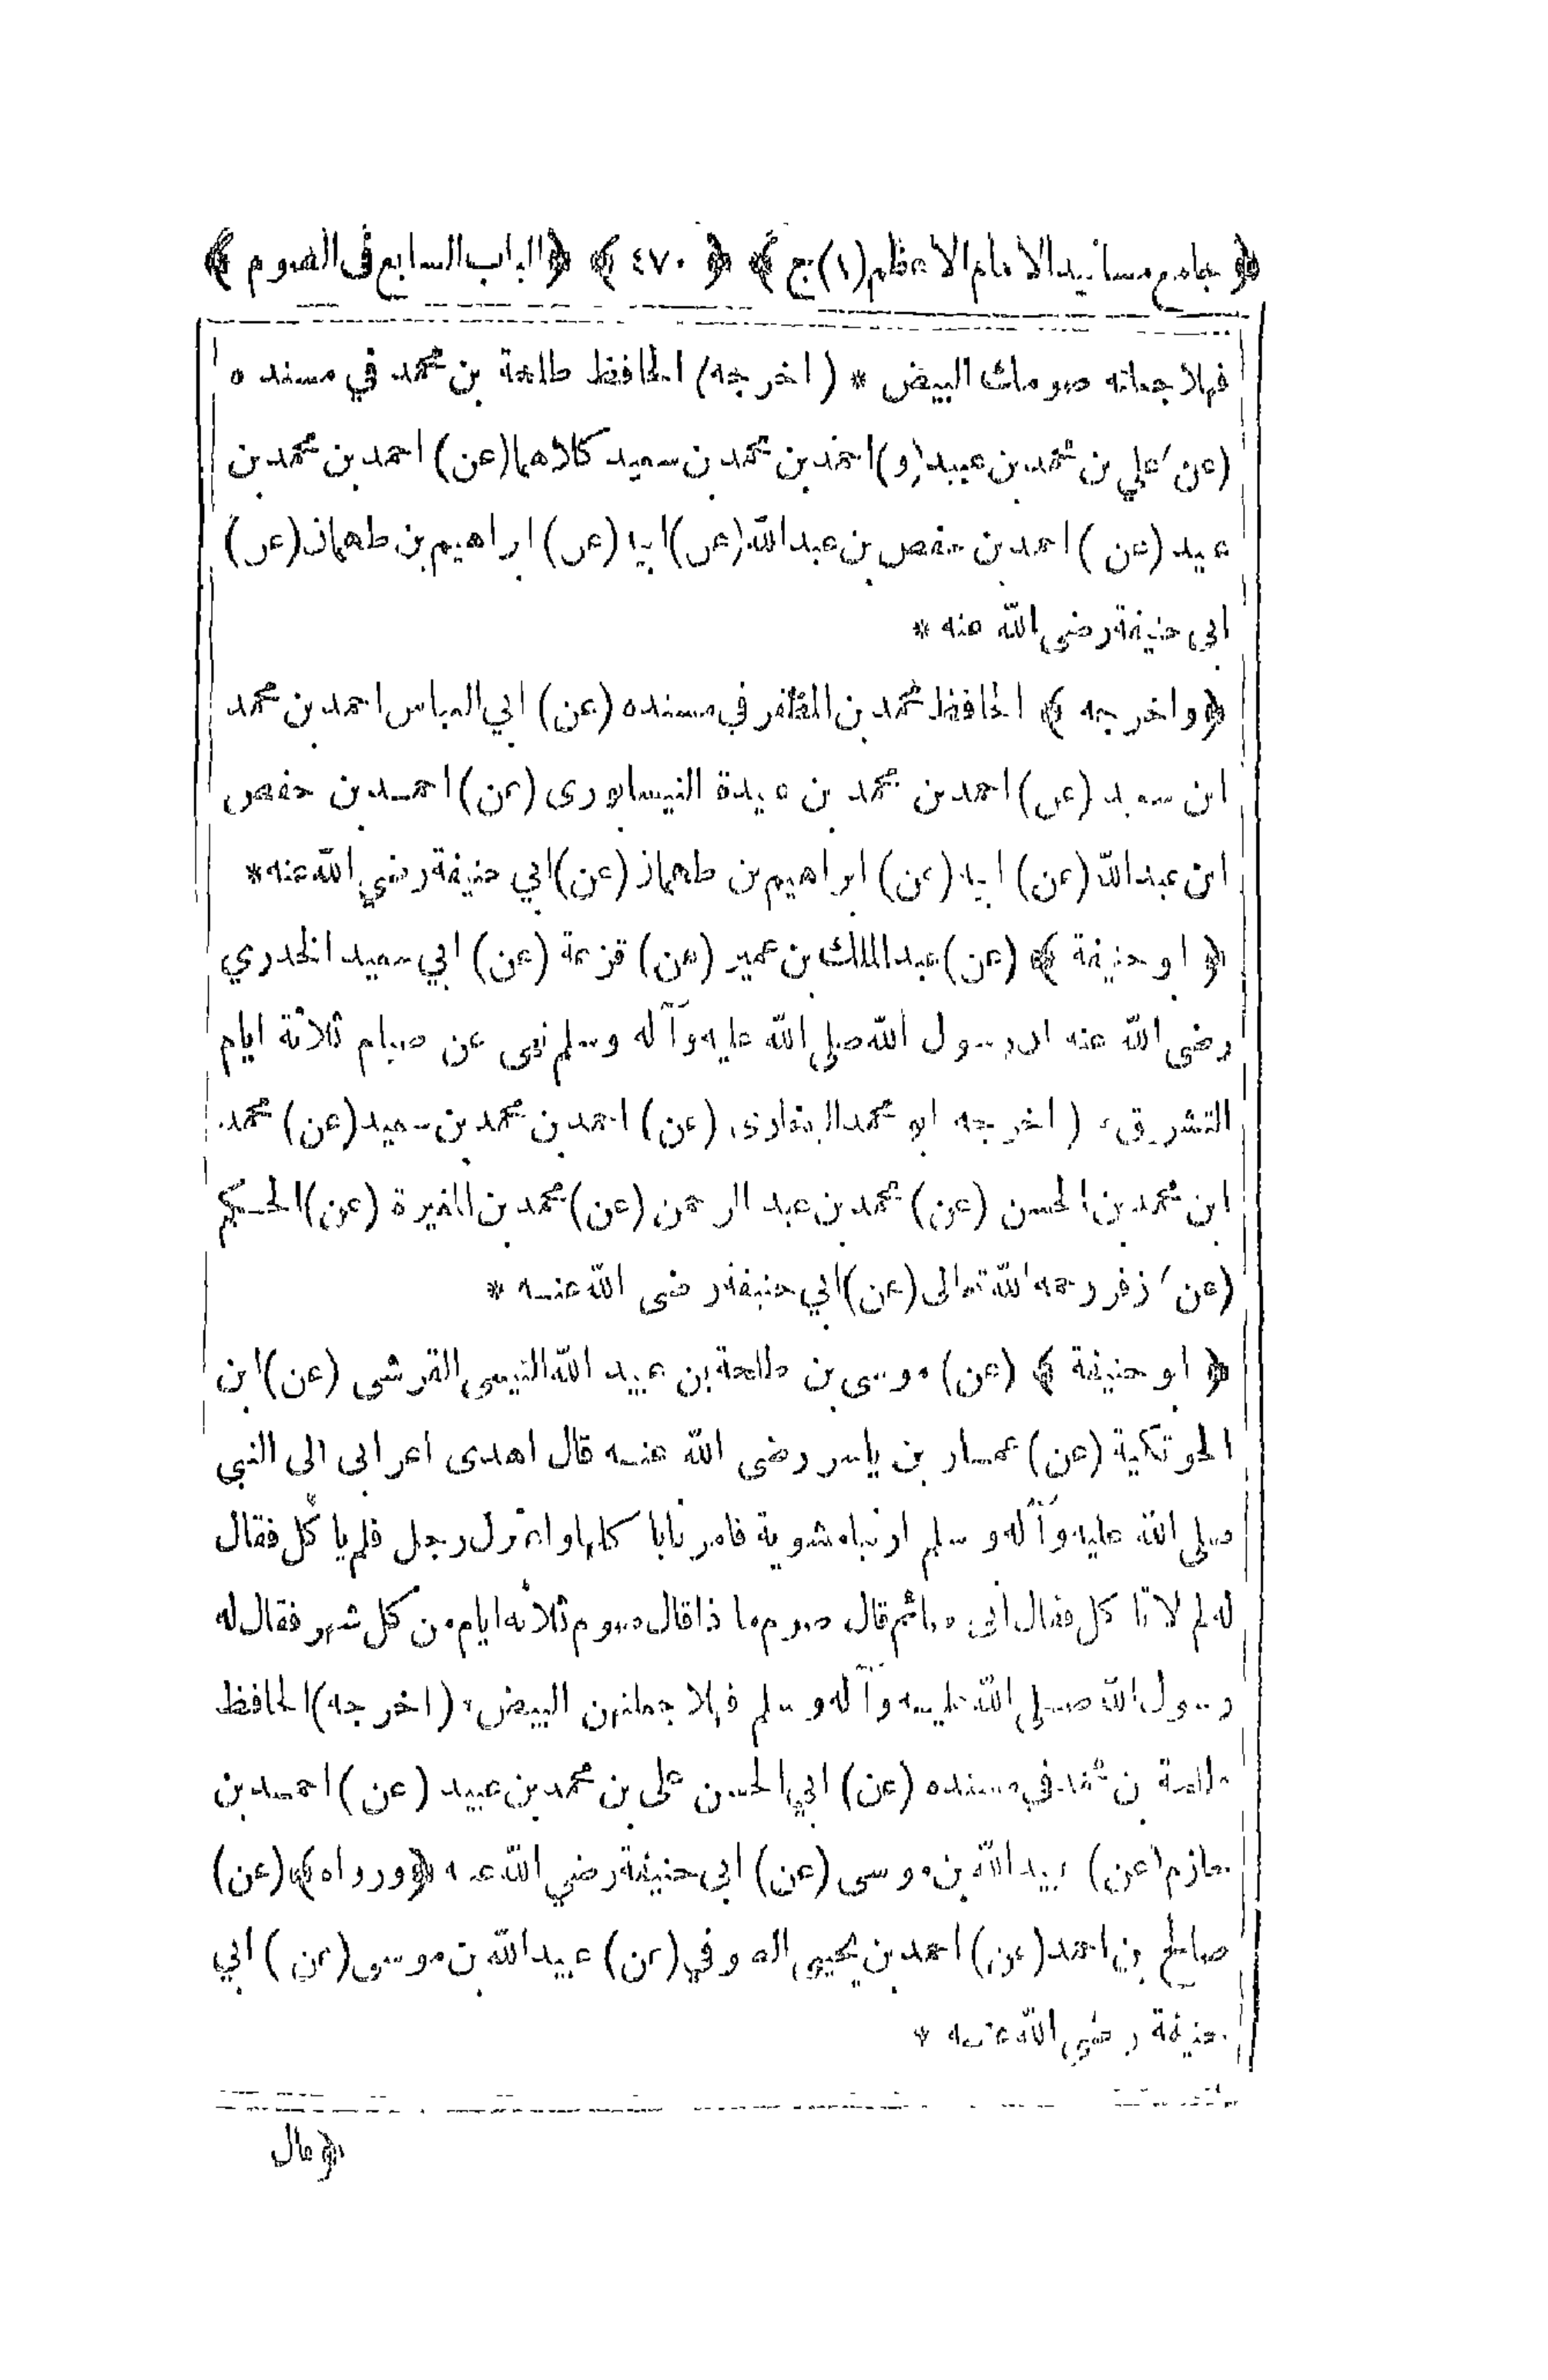 ﴿ جامع مسانيد الامام الاعظم (١) ج ﴾ ﴿ ٤٧٠ ﴾ ﴿ الباب السابع فى الصوم ﴾
فهلا جعلته صومك البيض * ( اخرجه ) الحافظ طلحة بن محمد في مسنده
(عن) علي بن محمد بن عبيد (و) احمد بن محمد بن سعيد كلاهما (عن) احمد بن محمد بن
عبيد (عن) احمد بن حفص بن عبدالله (عن) ابيه (عن) ابراهيم بن طهمان (عن)
ابى حنيفة رضى الله عنه *
﴿ واخرجه ﴾ الحافظ محمد بن المظفر في مسنده (عن) ابي العباس احمد بن محمد
ابن سعيد (عن) احمد بن محمد بن عبيدة النيسابورى (عن) احمد بن حفص
ابن عبدالله (عن) ابيه (عن) ابراهيم بن طهمان (عن) ابي حنيفة رضي الله عنه *
﴿ ابو حنيفة ﴾ (عن) عبد الملك بن عمير (عن) قزعة (عن) ابي سعيد الخدري
رضى الله عنه ان رسول الله صلى الله عليه وآله وسلم نهى عن صيام ثلاثة ايام
التشريق * ( اخرجه ابو محمد البخارى (عن) احمد بن محمد بن سعيد (عن) محمد
ابن محمد بن الحسن (عن) محمد بن عبد الرحمن (عن) محمد بن المغيرة (عن) الحكم
(عن) زفر رحمه الله تعالى (عن) ابي حنيفة رضى الله عنه *
﴿ ابو حنيفة ﴾ (عن) موسى بن طلحة بن عبيد الله التيمى القرشى (عن) ابن
الحوتكية (عن) عمار بن ياسر رضى الله عنه قال اهدى اعرابى الى النبي
صلى الله عليه وآله وسلم ارنبا مشوية فامرنا باكلها واعتزل رجل فلم يأكل فقال
له لم لا تأكل فقال أنى صائم قال صوم ماذا قال صوم ثلاثة ايام من كل شهر فقال له
رسول الله صلى الله عليه وآله وسلم فهلا جعلتهن البيض * ( اخرجه ) الحافظ
طلحة بن محمد في مسنده (عن) ابي الحسن على بن محمد بن عبيد (عن) احمد بن
حازم (عن) عبيد الله بن موسى (عن) ابى حنيفة رضي الله عنه ﴿ ورواه ﴾ (عن)
صالح بن احمد (عن) احمد بن يحيى الصوفي (عن) عبيد الله بن موسى (عن) ابي
حنيفة رضي الله عنه *